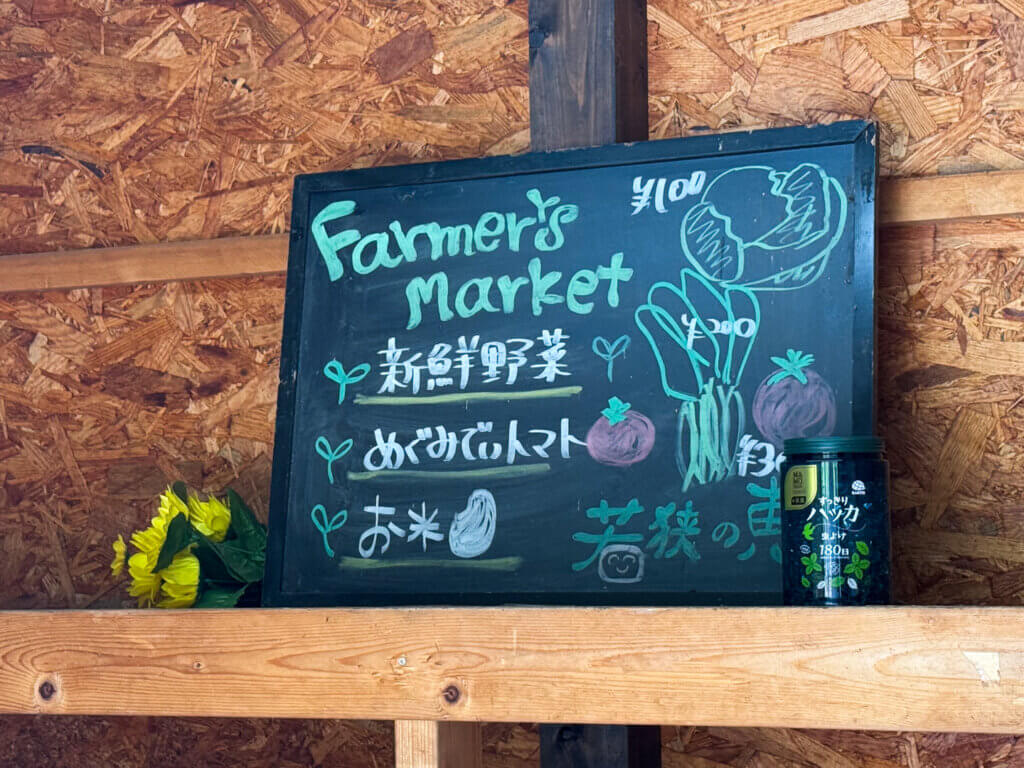 Farmer's
Market
¥100
新鮮野菜
¥200
めぐみでぃトマト
¥30
お米
若狭の恵
すっきり
ハッカ
虫よけ
180日